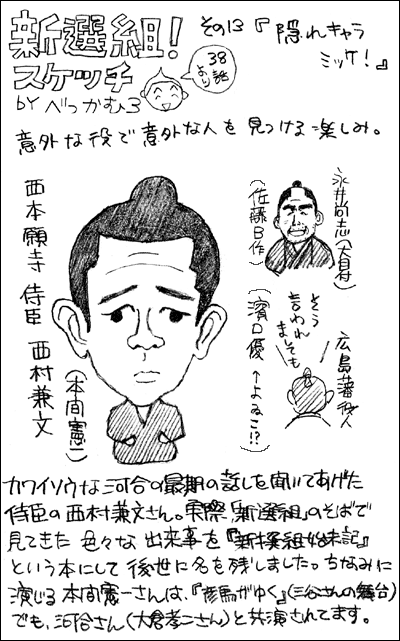 新選組！
スケッチ
BY べっかむ3
38話より
その13『隠れキャラ
ミッケ！』
意外な役で意外な人を見つける楽しみ。
西本願寺 侍臣 西村兼文
(本間憲一)
永井尚志(大目付)
(佐藤B作)
そう
言われ
ましても
広島藩役人
濱口優 ←よゐこ!?
カワイソウな河合の最期の話しを聞いてあげた
侍臣の西村兼文さん。実際「新選組」のそばで
見てきた色々な出来事を『新撰組始末記』
という本にして後世に名を残しました。ちなみに
演じる本間憲一さんは、『彦馬がゆく』(三谷さんの舞台)
でも、河合さん(大倉孝二さん)と共演されてます。